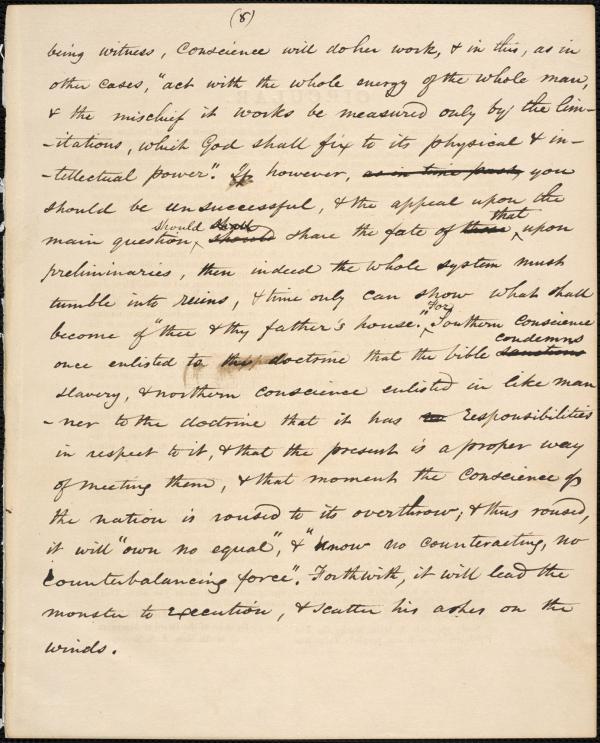 (8)
being witness, Conscience will do her work, & in this, as in
other cases, "act with the whole energy of the whole man,
& the mischief it works be measured only by the lim-
-itations, which God shall fix to its physical & in-
-tellectual power". If however, as in time past, you
should be unsuccessful, & the appeal upon the
main question, should shall should share the fate of those that upon
preliminaries, then indeed the whole system must
tumble into reuins, & time only can show what shall
become of "thee & thy father's house." For Southern conscience
once enlisted to this doctrine that the bible sanctions condemns
slavery, & northern conscience enlisted in like man
-ner to the doctrine that it has no responsibilities
in respect to it, & that the present is a proper way
of meeting them, & that moment the conscience of
the nation is roused to its overthrow; & thus roused,
it will "own no equal", & "know no counteracting, no
counterbalancing force". Forthwith, it will lead the
monster to execution, & scatter his ashes on the
winds.